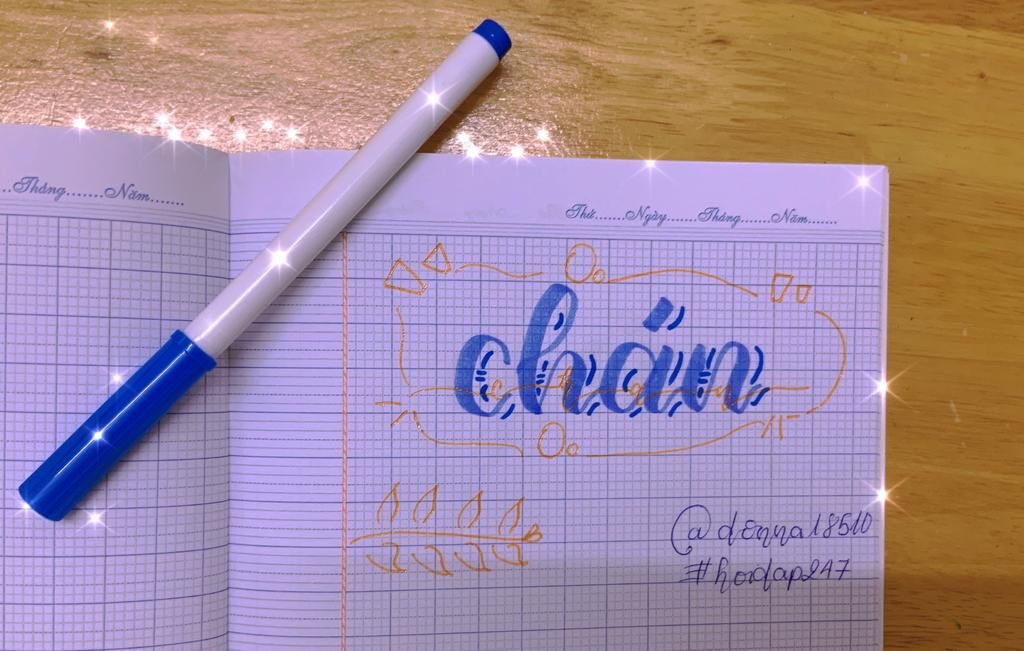 ...Tháng.......Năm.......
Thứ......Ngày.......Tháng.......Năm.......
chán
@denna18510
#hoidap247